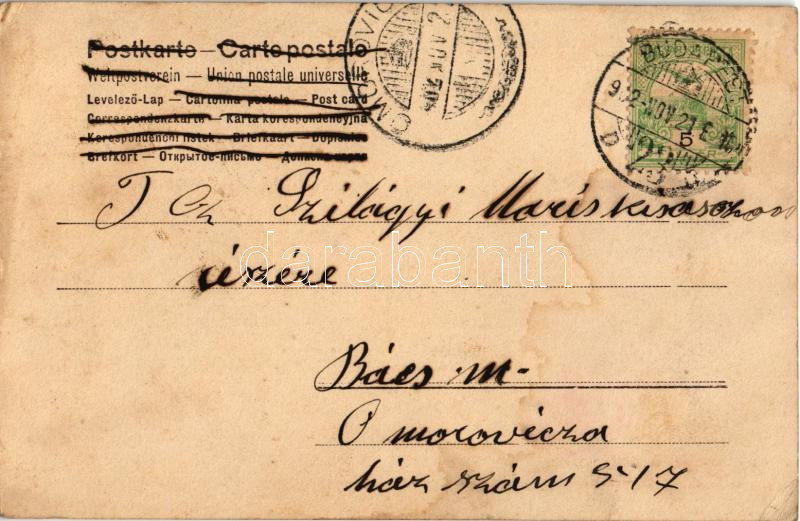 Postkarte – Carte postale
Weltpostverein – Union postale universelle
Levelező-Lap – Cartolina postale – Post card
Correspondenzkarte – Karta korespondencyjna
Korespondenční lístek – Briefkaart – Dopisnice
Brefkort – Открытое письмо – Дописна карта
OMOROVIC
NOV 2
BUDAPEST
902 NOV 21
D
5
T Cz Szilágyi Maris kisasszony
részére
darabanth
Bács m-
O morovicza
ház szám 517